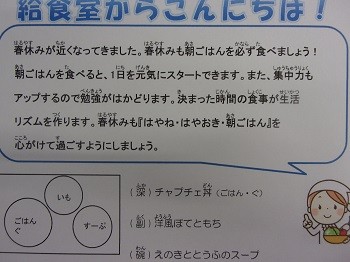 給食室からこんにちは！
春休みが近くなってきました。春休みも朝ごはんを必ず食べましょう！
朝ごはんを食べると、1日を元気にスタートできます。また、集中力も
アップするので勉強がはかどります。決まった時間の食事が生活
リズムを作ります。春休みも『はやね・はやおき・朝ごはん』を
心がけて過ごすようにしましょう。
いも
ごはん
ぐ
すーぷ
（深）チャプチェ丼（ごはん・ぐ）
（副）洋風ぽてともち
（碗）えのきととうふのスープ